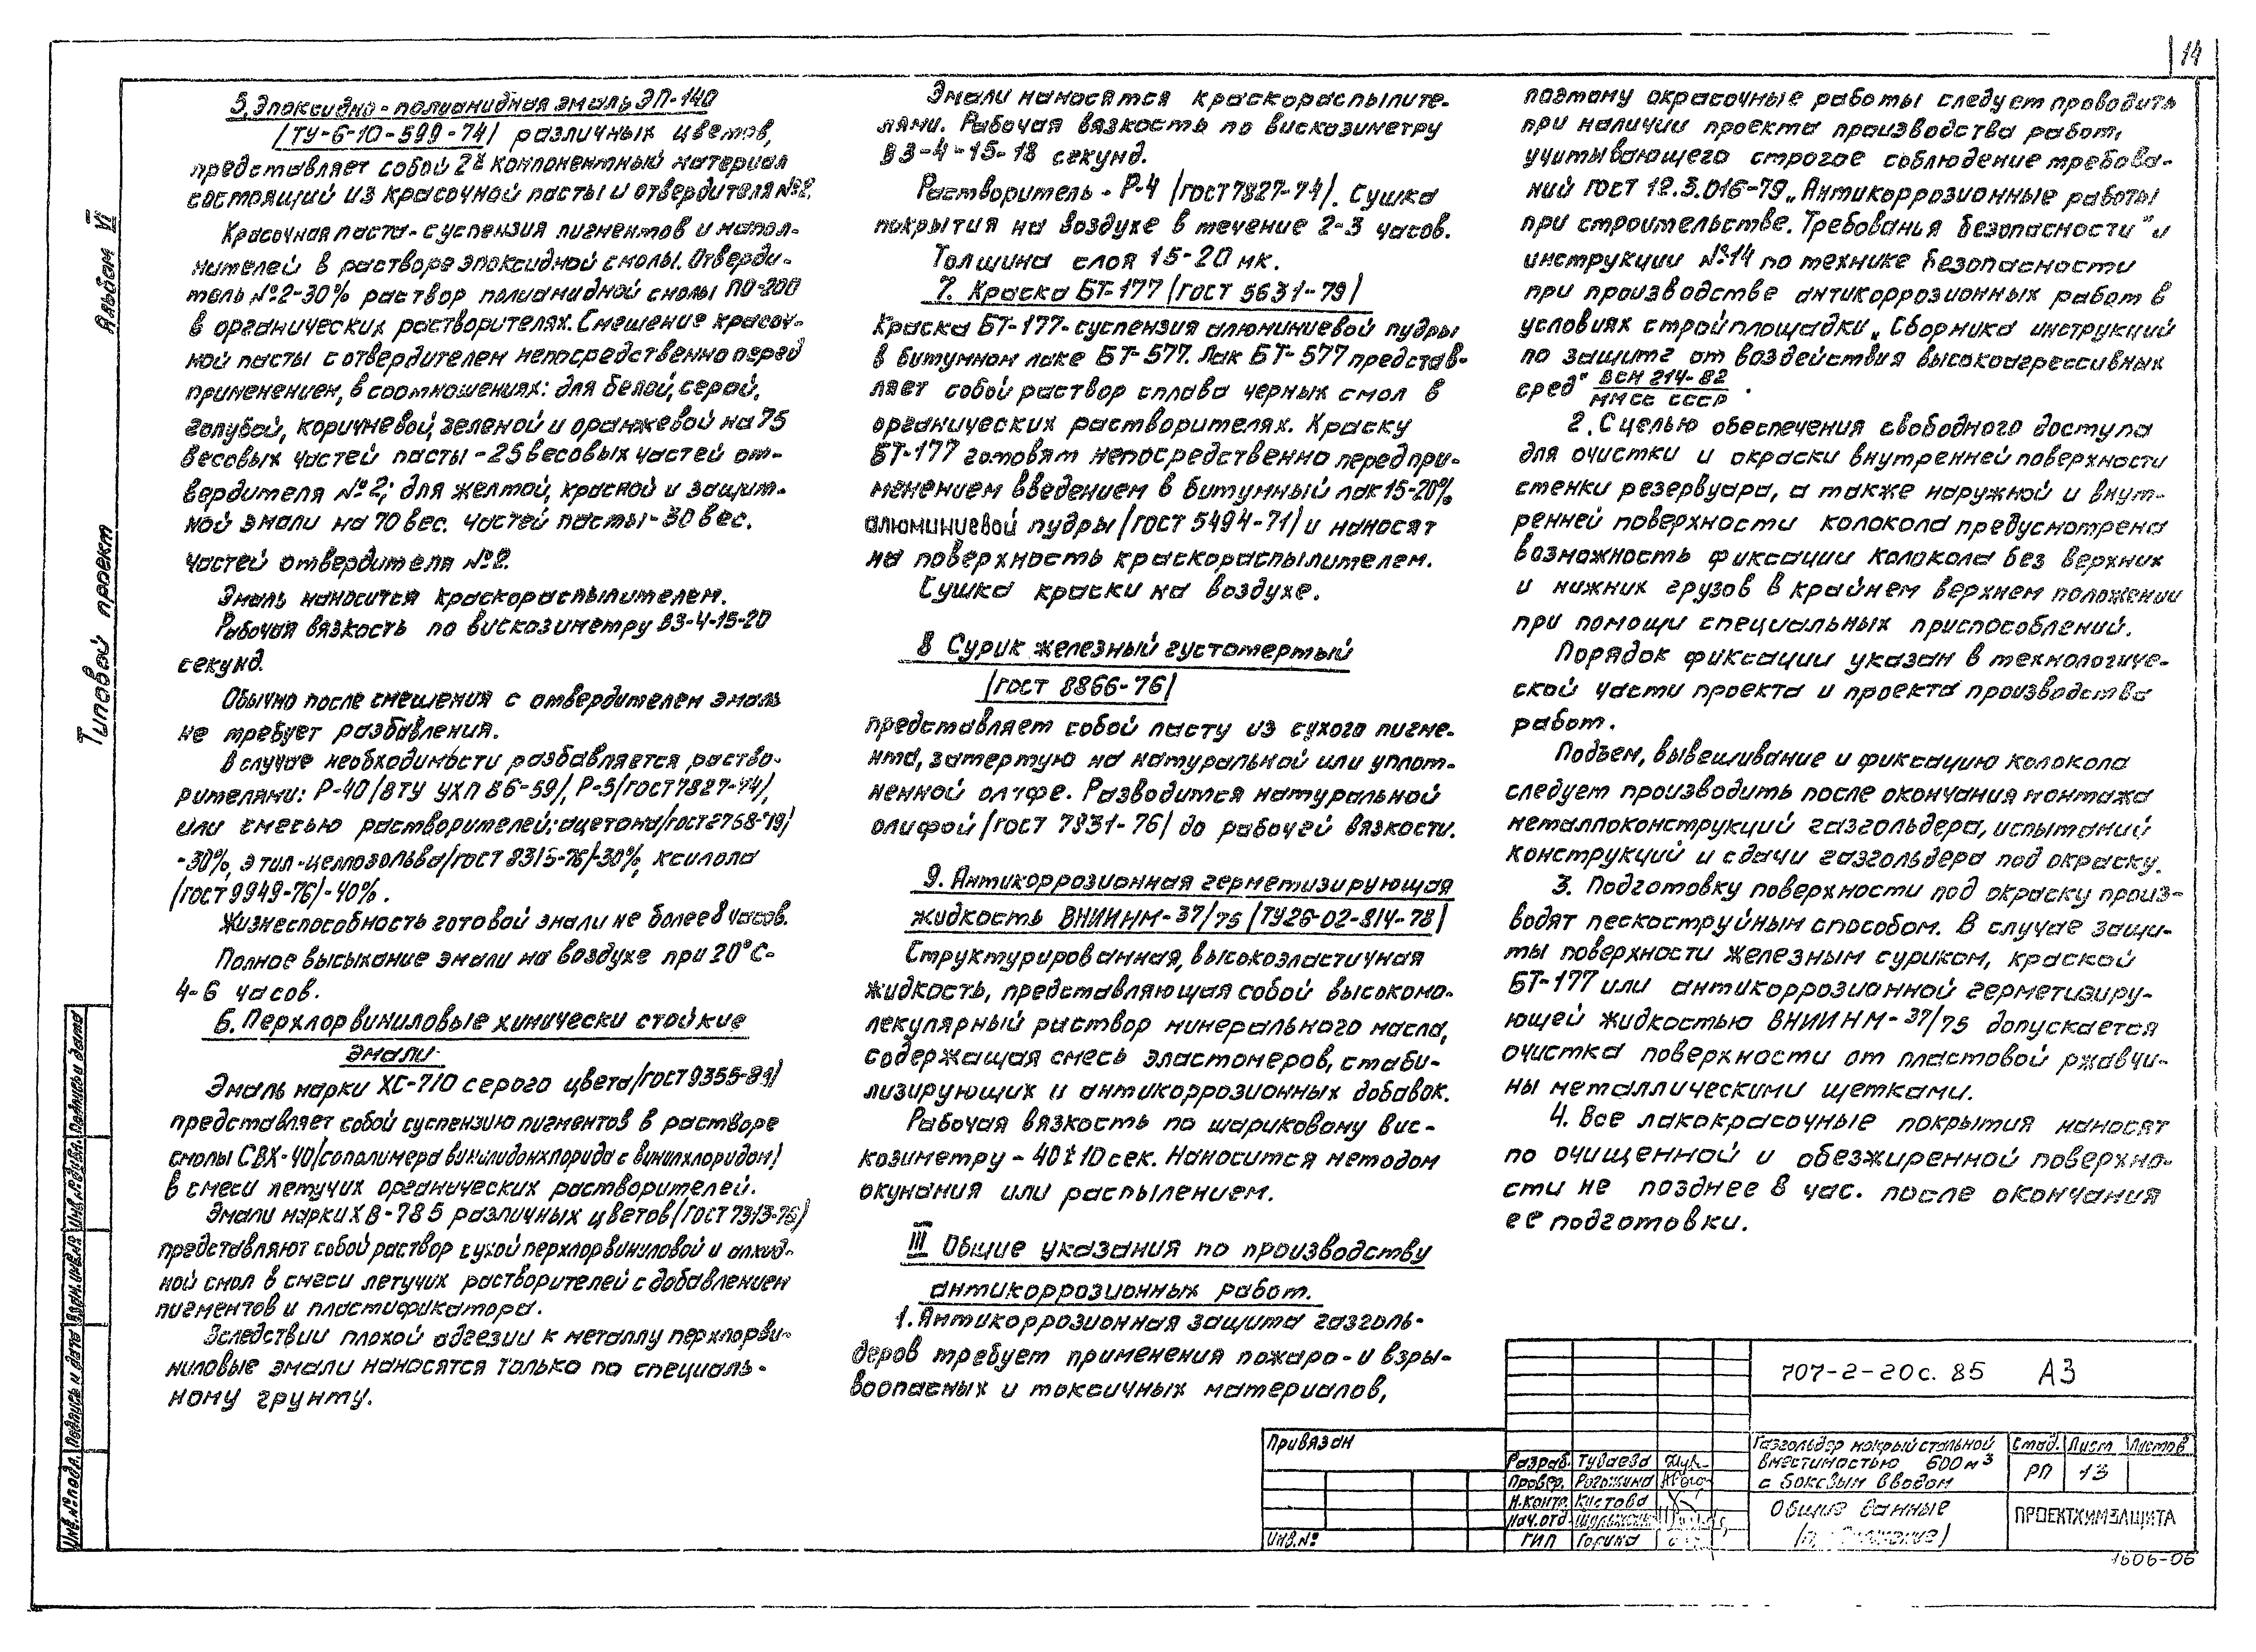 14
5. Эпоксидно-полиамидная эмаль ЭП-140
/ТУ-6-10-599-74/ различных цветов,
представляет собой 2х компонентный материал
состоящий из красочной пасты и отвердителя №2.
Красочная паста-суспензия пигментов и напол-
нителей в растворе эпоксидной смолы. Отверди-
тель №2-30% раствор полиамидной смолы ПО-200
в органических растворителях. Смешение красоч-
ной пасты с отвердителем непосредственно перед
применением, в соотношениях: для белой, серой,
голубой, коричневой, зеленой и оранжевой на 75
весовых частей пасты -25 весовых частей от-
вердителя №2; для желтой, красной и защит-
ной эмали на 70 вес. частей пасты-30 вес.
частей отвердителя №2.
Эмаль наносится краскораспылителем.
Рабочая вязкость по вискозиметру ВЗ-4-15-20
секунд.
Обычно после смешения с отвердителем эмаль
не требует разбавления.
В случае необходимости разбавляется раство-
рителями: Р-40/ВТУ УХП 86-59/, Р-5/ГОСТ 7827-74/,
или смесью растворителей: ацетона/ГОСТ 2768-79/
-30%, этил-целлозольва/ГОСТ 8315-76/-30%, ксилола
/ГОСТ 9949-76/-40%.
Жизнеспособность готовой эмали не более 8 часов.
Полное высыхание эмали на воздухе при 20°С-
4-6 часов.
6. Перхлорвиниловые химически стойкие
эмали.
Эмаль марки ХС-710 серого цвета/ГОСТ 9355-81/
представляет собой суспензию пигментов в растворе
смолы СВХ-40/сополимера винилиденхлорида с винилхлоридом/
в смеси летучих органических растворителей.
Эмали марки ХВ-785 различных цветов/ГОСТ 7313-75/
представляют собой раствор сухой перхлорвиниловой и алкид-
ной смол в смеси летучих растворителей с добавлением
пигментов и пластификатора.
Вследствии плохой адгезии к металлу перхлорви-
ниловые эмали наносятся только по специаль-
ному грунту.
Эмали наносятся краскораспылите-
лями. Рабочая вязкость по вискозиметру
ВЗ-4-15-18 секунд.
Растворитель - Р-4 /ГОСТ 7827-74/. Сушка
покрытия на воздухе в течение 2-3 часов.
Толщина слоя 15-20 мк.
7. Краска БТ-177 /ГОСТ 5631-79/
Краска БТ-177-суспензия алюминиевой пудры
в битумном лаке БТ-577. Лак БТ-577 представ-
ляет собой раствор сплава черных смол в
органических растворителях. Краску
БТ-177 готовят непосредственно перед при-
менением введением в битумный лак 15-20%
алюминиевой пудры/ГОСТ 5494-71/ и наносят
на поверхность краскораспылителем.
Сушка краски на воздухе.
8 Сурик железный густотертый
/ГОСТ 8866-76/
представляет собой пасту из сухого пигме-
нта, затертую на натуральной или уплот-
ненной олифе. Разводится натуральной
олифой/ГОСТ 7931-76/ до рабочей вязкости.
9. Антикоррозионная герметизирующая
жидкость ВНИИНМ-37/75 /ТУ26-02-814-78/
Структурированная, высокоэластичная
жидкость, представляющая собой высокомо-
лекулярный раствор минерального масла,
содержащая смесь эластомеров, стаби-
лизирующих и антикоррозионных добавок.
Рабочая вязкость по шариковому вис-
козиметру - 40±10 сек. Наносится методом
окунания или распылением.
III Общие указания по производству
антикоррозионных работ.
1. Антикоррозионная защита газголь-
деров требует применения пожаро- и взры-
воопасных и токсичных материалов,
поэтому окрасочные работы следует проводить
при наличии проекта производства работ,
учитывающего строгое соблюдение требова-
ний ГОСТ 12.3.016-79 „Антикоррозионные работы
при строительстве. Требованья безопасности" и
инструкции №14 по технике безопасности
при производстве антикоррозионных работ в
условиях стройплощадки „Сборника инструкций
по защите от воздействия высокоагрессивных
сред" ВСН 214-82
ММСС СССР.
2. С целью обеспечения свободного доступа
для очистки и окраски внутренней поверхности
стенки резервуара, а также наружной и внут-
ренней поверхности колокола предусмотрена
возможность фиксации колокола без верхних
и нижних грузов в крайнем верхнем положении
при помощи специальных приспособлений.
Порядок фиксации указан в технологиче-
ской части проекта и проекта производства
работ.
Подъем, вывешивание и фиксацию колокола
следует производить после окончания монтажа
металлоконструкций газгольдера, испытаний
конструкций и сдачи газгольдера под окраску.
3. Подготовку поверхности под окраску произ-
водят пескоструйным способом. В случае защи-
ты поверхности железным суриком, краской
БТ-177 или антикоррозионной герметизиру-
ющей жидкостью ВНИИНМ-37/75 допускается
очистка поверхности от пластовой ржавчи-
ны металлическими щетками.
4. Все лакокрасочные покрытия наносят
по очищенной и обезжиренной поверхно-
сти не позднее 8 час. после окончания
ее подготовки.
Типовой проект Альбом VI
Инв.№подл. Подпись и дата Взам.инв.№ Инв.№дубл. Подпись и дата
Привязан
Инв.№
Разраб. Туваева
Провер. Рогожина
Н.контр. Кистова
Нач.отд.
ГИП Горина
707-2-20с.85 А3
Газгольдер мокрый стальной
вместимостью 600м³
с боковым вводом
Стад. Лист Листов
РП 13
Общие данные
ПРОЕКТХИМЗАЩИТА
1606-06